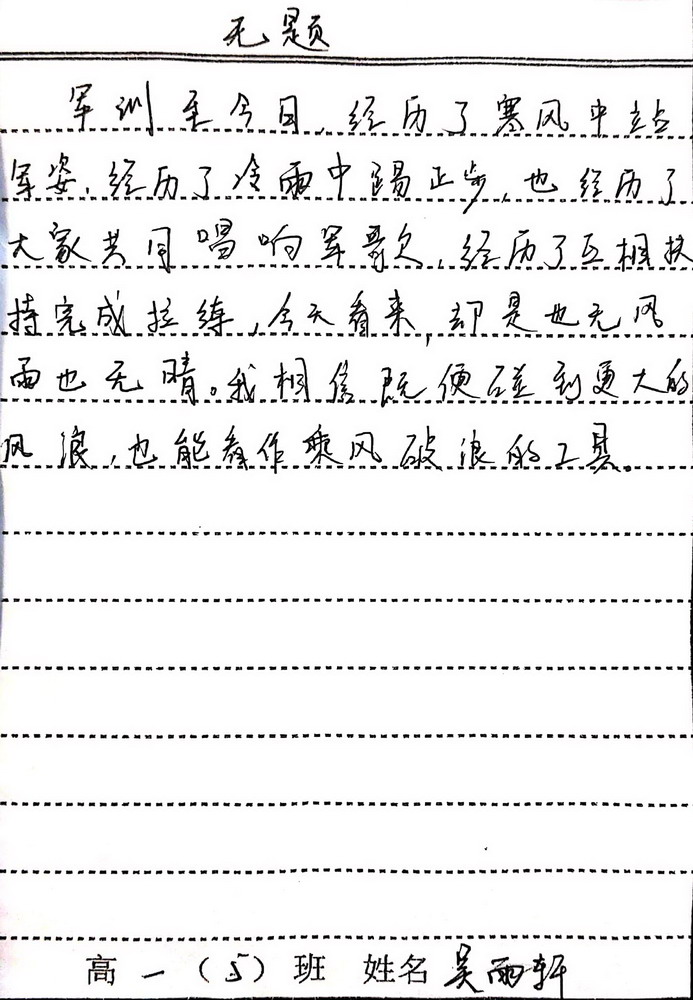 无题
军训至今日，经历了寒风中站
军姿，经历了冷雨中踢正步，也经历了
大家共同唱响军歌，经历了互相扶
持完成拉练，今天看来，却是也无风
雨也无晴。我相信既便碰到更大的
风浪，也能看作乘风破浪的工具。
高一（5）班 姓名 吴雨轩